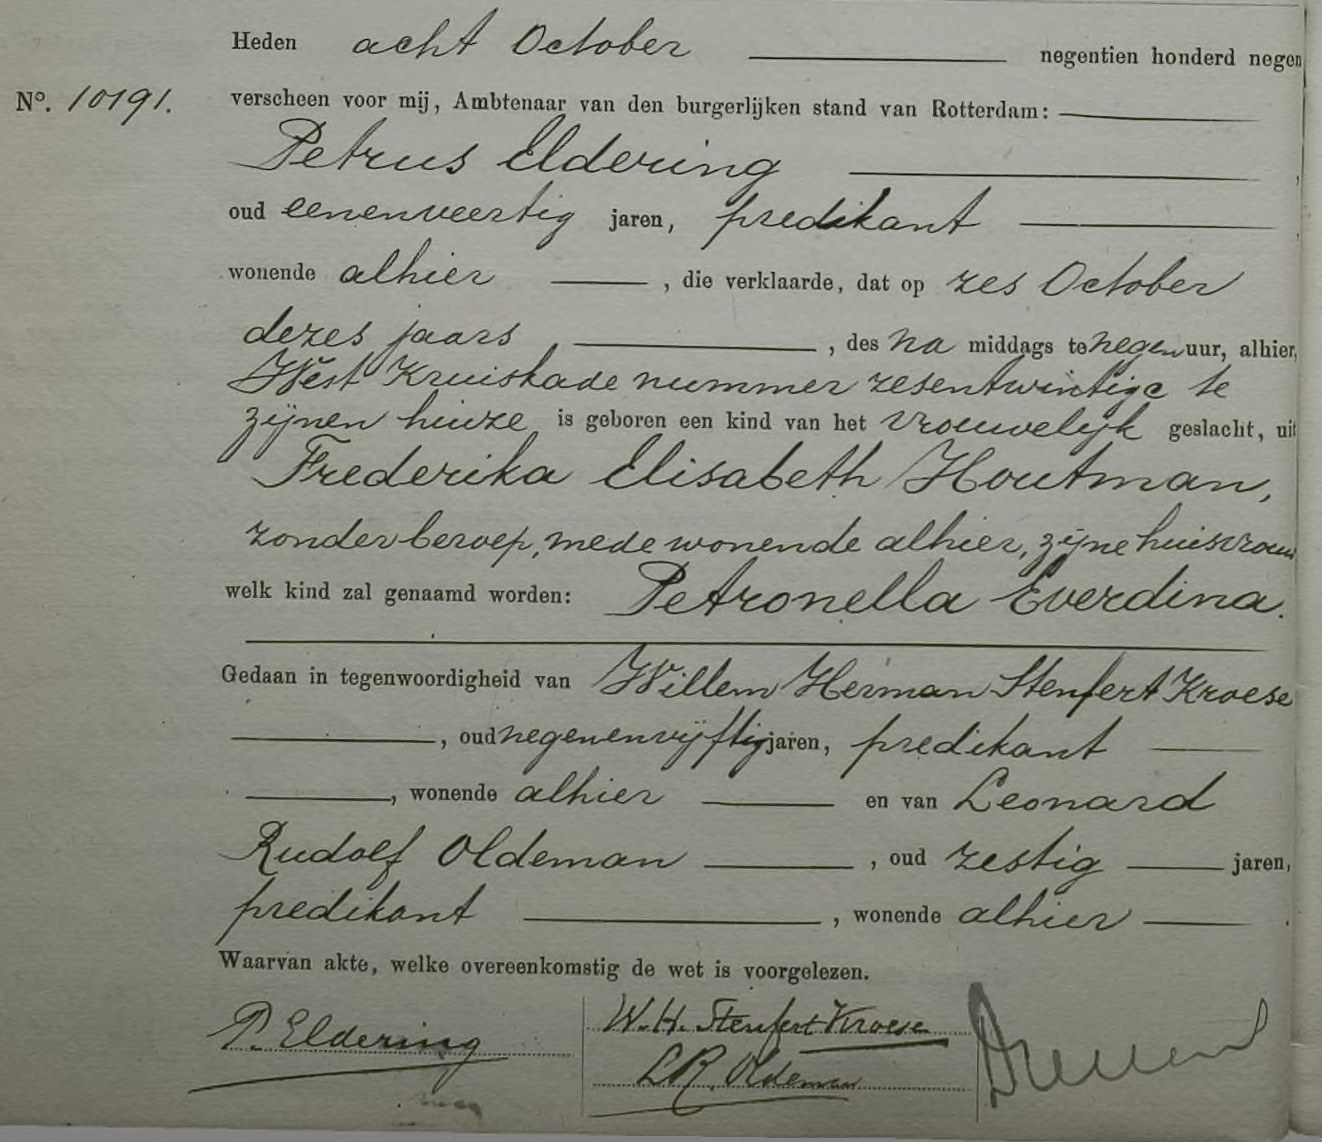 Heden acht October negentien honderd negen
No. 10191. verscheen voor mij, Ambtenaar van den burgerlijken stand van Rotterdam:
Petrus Eldering
oud eenenveertig jaren, predikant
wonende alhier , die verklaarde, dat op zes October
dezes jaars , des na middags te negen uur, alhier,
West Kruiskade nummer zesentwintig c te
zijnen huize is geboren een kind van het vrouwelijk geslacht, uit
Frederika Elisabeth Houtman,
zonder beroep, mede wonende alhier, zijne huisvrouw
welk kind zal genaamd worden: Petronella Everdina.
Gedaan in tegenwoordigheid van Willem Herman Stenfert Kroese
, oud negenenvijftig jaren, predikant
, wonende alhier en van Leonard
Rudolf Oldeman , oud zestig jaren,
predikant , wonende alhier .
Waarvan akte, welke overeenkomstig de wet is voorgelezen.
P. Eldering W. H. Stenfert Kroese
L R. Oldeman